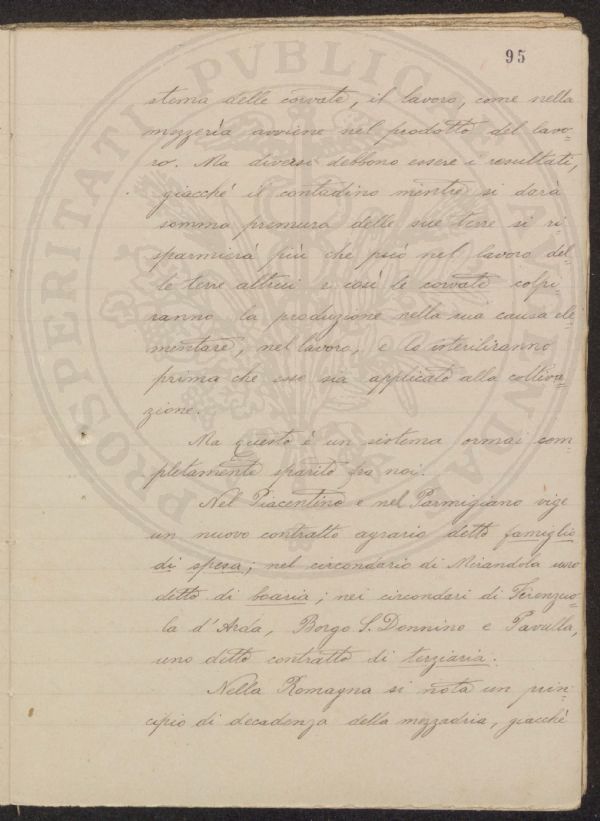 95
stema delle corvate, il lavoro, come nella
mezzeria avviene nel prodotto del lavo-
ro. Ma diversi debbono essere i resultati,
giacché il contadino mentre si darà
somma premura delle sue terre si ri
sparmierà più che può nel lavoro del-
le terre altrui e così le corvate colpi
ranno la produzione nella sua causa ele
mentare, nel lavoro, e lo isteriliranno
prima che esso sia applicato alla coltiva-
zione.
Ma questo è un sistema ormai com-
pletamente sparito fra noi.
Nel Piacentino e nel Parmigiano vige
un nuovo contratto agrario detto famiglio
di spesa; nel circondario di Mirandola uno
detto di boaria; nei circondari di Firenzuo-
la d'Arda, Borgo S. Donnino e Pavullo,
uno detto contratto di terziaria.
Nella Romagna si nota un prin-
cipio di decadenza della mezzadria, giacché
PROSPERITATI PVBLICAE AVGENDAE